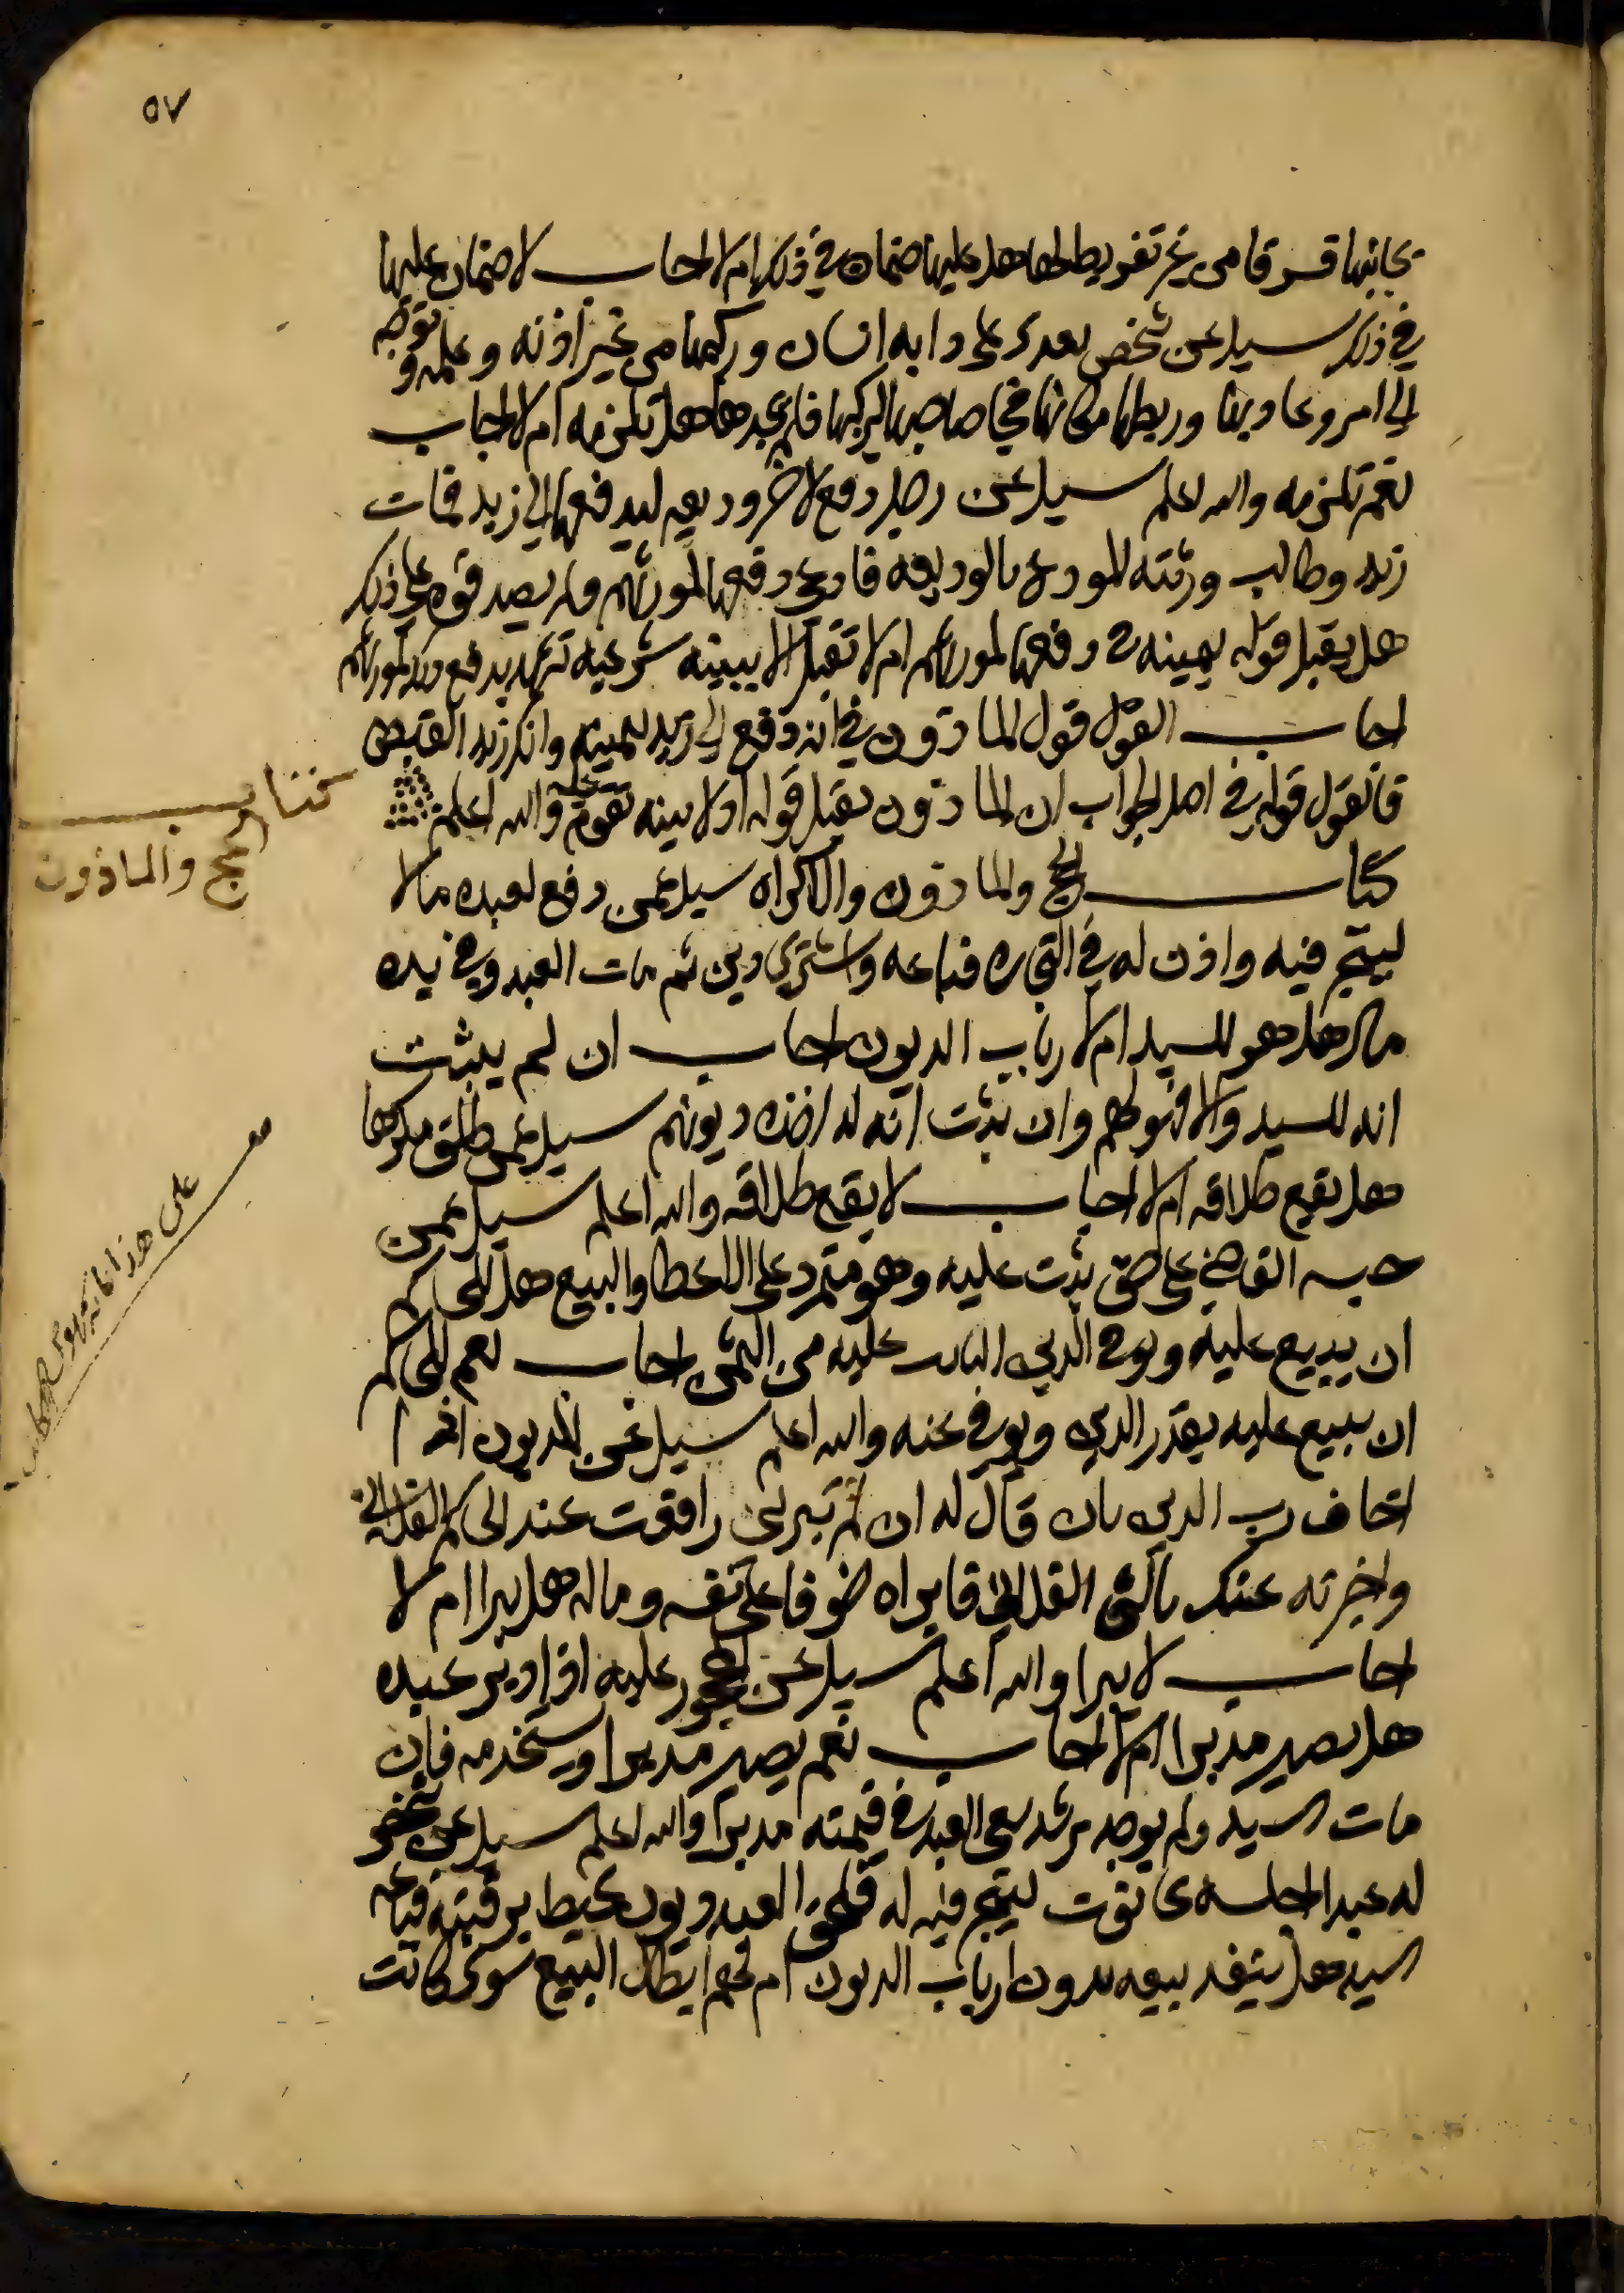 ٥٧
بجانبها فسرقا من غير تفريط لها هل عليها ضمان في ذلك ام لا اجاب لا ضمان عليها
في ذلك سيل عن شخص تعدى على دابه انسان وركبها من غير اذنه وعلمه وتوجه
الى امر وعاد بها وربطها مكانها فجا صاحبها ليركبها فلم يجدها هل تلزمه ام لا اجاب
نعم تلزمه والله اعلم سيل عن رجل دفع لاخر وديعه ليدفعها الى زيد فمات
زيد وطالب ورثته المودع بالوديعه فادعى دفعها لمورثهم ولم يصدقوه على ذلك
هل يقبل قوله بيمينه في دفعها لمورثهم ام لا تقبل الا ببينه شرعيه تشهد بدفع ذلك لمورثهم
اجاب القول قول الماذون في انه دفع الى زيد بيمينه وان انكر زيد القبض
فالقول قوله في اصل الجواب ان الماذون يقبل قوله اولا بينه تقوم عليه والله اعلم
كتاب الحجر والماذون والاكراه سيل عمن دفع لعبده مالا
ليتجر فيه واذن له في التجاره فباعه واشترى دين ثم مات العبد وفي يده
مال هل هو للسيد ام لارباب الديون اجاب ان لم يثبت
انه للسيد والا فهو لهم وان ثبت انه له اخذه ديونهم سيل عمن طلق مكرها
هل يقع طلاقه ام لا اجاب لا يقع طلاقه والله اعلم سيل عمن
حبسه القاضي على حق ثبت عليه وهو متمرد على الاعطا والبيع هل للحاكم
ان يبيع عليه ويوفي الدين الثابت عليه من الثمن اجاب نعم للحاكم
ان يبيع عليه بقدر الدين ويوفي عنه والله اعلم سيل عن المديون اذا
اخاف رب الدين بان قال له ان لم تبرئني رافعت عند الحاكم الفلاني
واخبرته عنك بالشي الفلاني فابراه خوفا على نفسه وماله هل يبرا ام لا
اجاب لا يبرا والله اعلم سيل عن المحجور عليه اذا دبر عبده
هل يصير مدبرا ام لا اجاب نعم يصير مدبرا ويستخدمه فان
مات السيد ولم يوجد رشد سعى العبد في قيمته مدبرا والله اعلم سيل عن شخص
له عبد اجلسه حانوت ليتجر فيه له فلحق العبد ديون تحيط برقبته فباعه
السيد هل ينفذ بيعه بدون ارباب الديون ام لهم ابطال البيع سوى كانت
كتاب
الحجر والماذون
على هذا